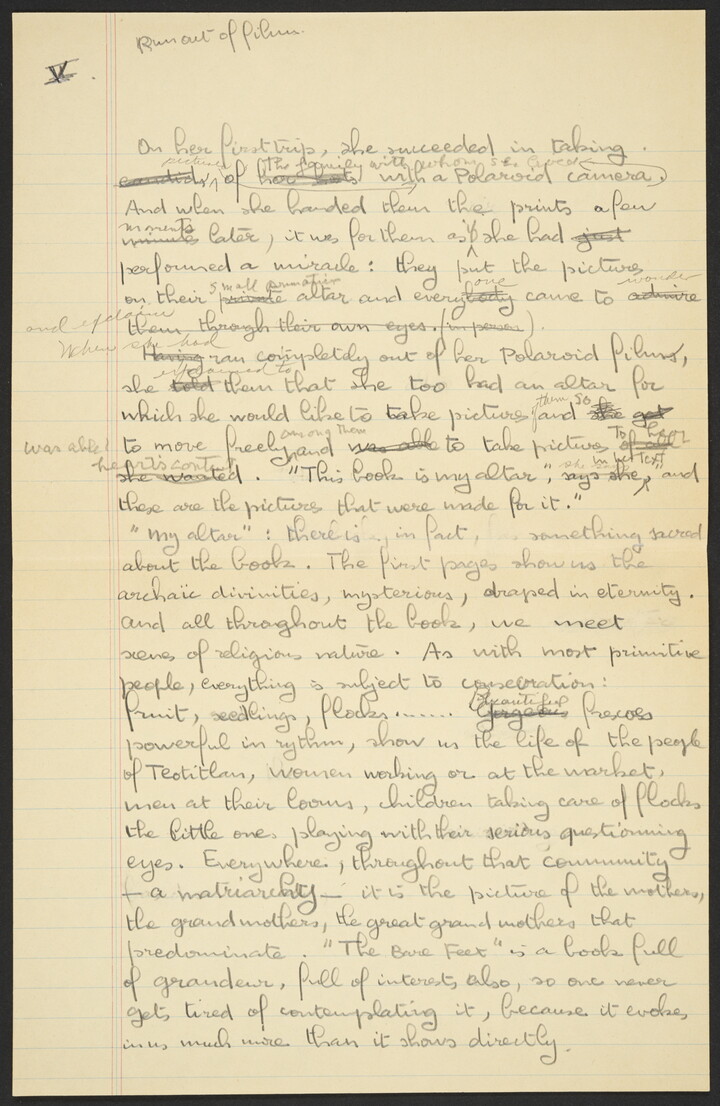 Run out of films.
V.
On her first trip, she succeeded in taking
pictures The family with whom she lived
candids, of her hosts with a Polaroid camera,
And when she handed them the prints a few
moments
minutes later, it was for them as if she had just
performed a miracle: they put the pictures
small primative one wonder
on their private altar and everybody came to admire
and explain
them, through their own eyes. (in person).
When she had
Having ran completely out of her Polaroid films,
explained to
she told them that she too had an altar for
them so
which she would like to take pictures and she got
was able among them To her
to move freely, and was able to take pictures of all
heart's content she in her Text
she wanted. "This book is my altar", says she, and
these are the pictures that were made for it."
"My altar": there is, in fact, something sacred
about the book. The first pages show us the
archaïc divinities, mysterious, draped in eternity.
And all throughout the book, we meet
scenes of religious nature. As with most primitive
people, everything is subject to consecration:
Beautiful
fruit, seedlings, flocks....... Gorgeous frescoes
powerful in rythm, show us the life of the people
of Teotitlan, women working or at the market,
men at their looms, children taking care of flocks
the little ones playing with their serious questionning
eyes. Everywhere, throughout that community
- a matriarchy - it is the picture of the mothers,
the grandmothers, the great grandmothers that
predominate. "The Bare Feet" is a book full
of grandeur, full of interest, also, so one never
gets tired of contemplating it, because it evokes
in us much more than it shows directly.